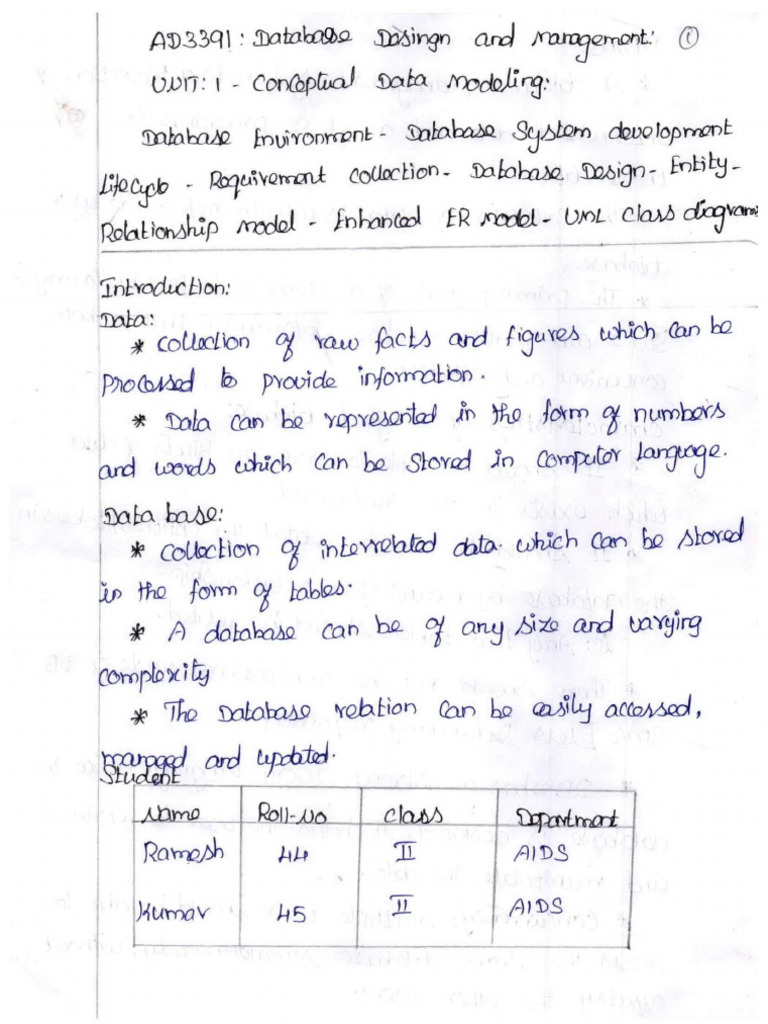 AD3391: Database Desingn and Management: ①
UNIT: 1 - Conceptual Data Modeling:
Database Environment - Database System development
Lifecycle - Requirement collection - Database Design - Entity-
Relationship model - Enhanced ER model - UML Class diagrams
Introduction:
Data:
* Collection of raw facts and figures which can be
processed to provide information.
* Data can be represented in the form of numbers
and words which can be stored in computer language.
Data base:
* Collection of interrelated data which can be stored
in the form of tables.
* A database can be of any size and varying
complexity
* The Database relation can be easily accessed,
managed and updated.
Student
Name Roll-No Class Department
Ramesh 44 II AIDS
Kumar 45 II AIDS